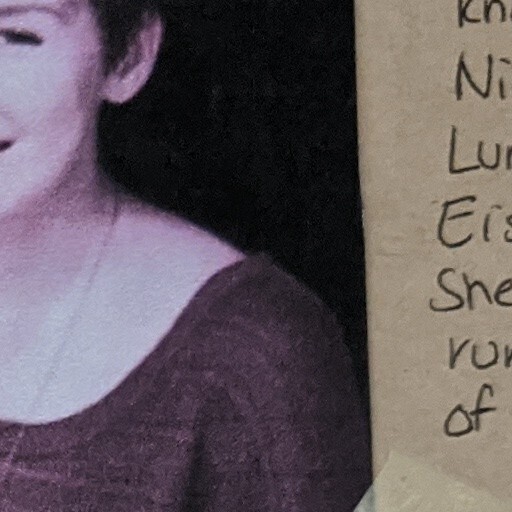 Kn
Ni
Lun
Eis
She
run
of